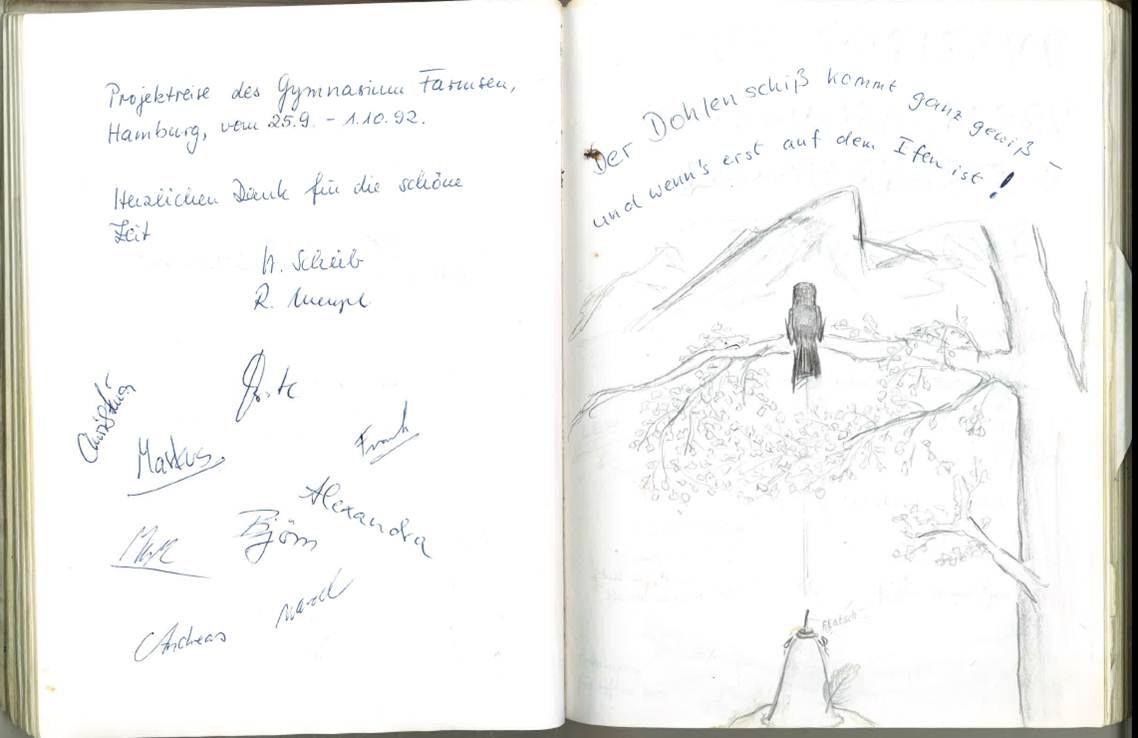 Projektreise des Gymnasium Farmsen,
Hamburg, vom 25.9. - 1.10.92.
Herzlichen Dank für die schöne
Zeit
Christian
Markus
Frank
Alexandra
Björn
Marcel
Andreas
Der Dohlenschiß kommt ganz gewiß -
und wenn's erst auf dem Ifen ist!
Platsch